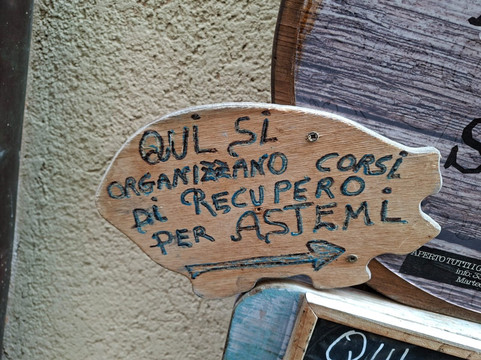 QUI SI
ORGANIZZANO CORSI
DI RECUPERO
PER ASTEMI
APERTO TUTTI I
info: 33
Marted
QUI